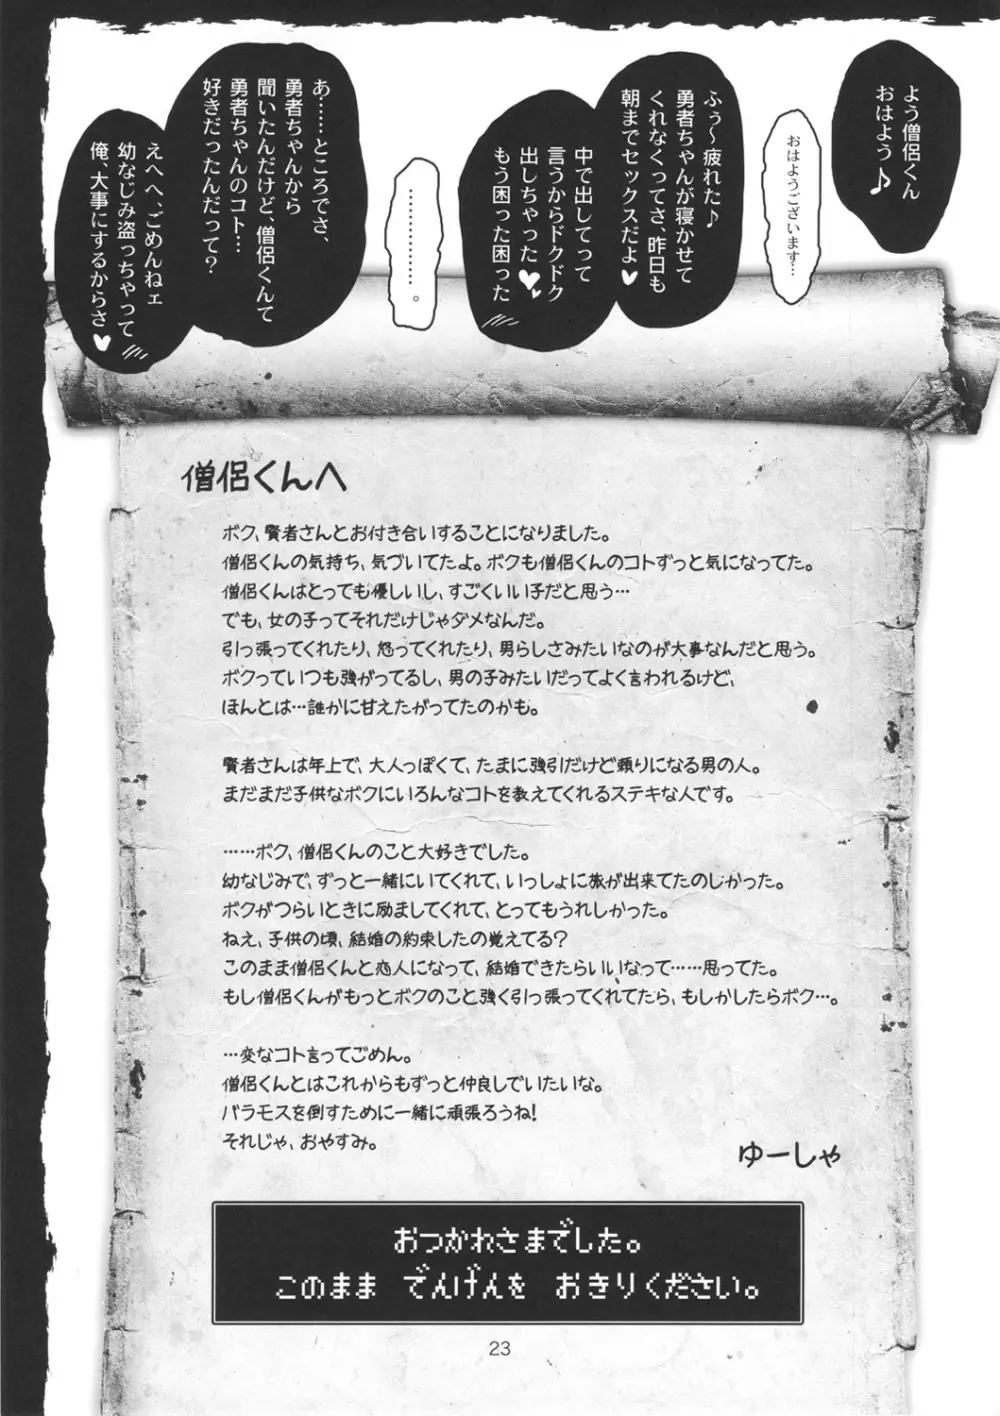 よう僧侶くん
おはよう♪
おはようございます…
ふぅ～疲れた♪
勇者ちゃんが寝かせて
くれなくってさ、昨日も
朝までセックスだよ♥
中で出してって
言うからドクドク
出しちゃった♥
もう困った困った
…………………。
あ……ところでさ、
勇者ちゃんから
聞いたんだけど、僧侶くんて
勇者ちゃんのコト…
好きだったんだって？
えへへ、ごめんねェ
幼なじみ盗っちゃって
俺、大事にするからさ♥
僧侶くんへ
ボク、賢者さんとお付き合いすることになりました。
僧侶くんの気持ち、気づいてたよ。ボクも僧侶くんのコトずっと気になってた。
僧侶くんはとっても優しいし、すごくいい子だと思う…
でも、女の子ってそれだけじゃダメなんだ。
引っ張ってくれたり、怒ってくれたり、男らしさみたいなのが大事なんだと思う。
ボクっていつも強がってるし、男の子みたいだってよく言われるけど、
ほんとは…誰かに甘えたがってたのかも。
賢者さんは年上で、大人っぽくて、たまに強引だけど頼りになる男の人。
まだまだ子供なボクにいろんなコトを教えてくれるステキな人です。
……ボク、僧侶くんのこと大好きでした。
幼なじみで、ずっと一緒にいてくれて、いっしょに旅が出来てたのしかった。
ボクがつらいときに励ましてくれて、とってもうれしかった。
ねえ、子供の頃、結婚の約束したの覚えてる？
このまま僧侶くんと恋人になって、結婚できたらいいなって……思ってた。
もし僧侶くんがもっとボクのこと強く引っ張ってくれてたら、もしかしたらボク…。
…変なコト言ってごめん。
僧侶くんとはこれからもずっと仲良しでいたいな。
バラモスを倒すために一緒に頑張ろうね！
それじゃ、おやすみ。
ゆーしゃ
おつかれさまでした。
このまま でんげんを おきりください。
23